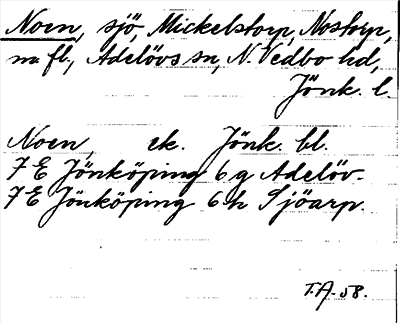 Noen, sjö, Mickelstorp, Nostorp,
m fl., Adelövs sn, N. Vedbo hd,
Jönk. l.
Noen, ek. Jönk. bl.
7 E Jönköping 6 g Adelöv.
7 E Jönköping 6 h Sjöarp.
T.A. 58.